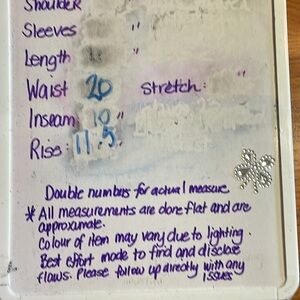 Shoulder
Sleeves "
Length "
Waist 20 Stretch: "
Inseam 10 "
Rise: 11.5
Double numbers for actual measure
* All measurements are done flat and are
approximate.
Colour of item may vary due to lighting.
Best effort made to find and disclose
flaws. Please follow up directly with any
issues